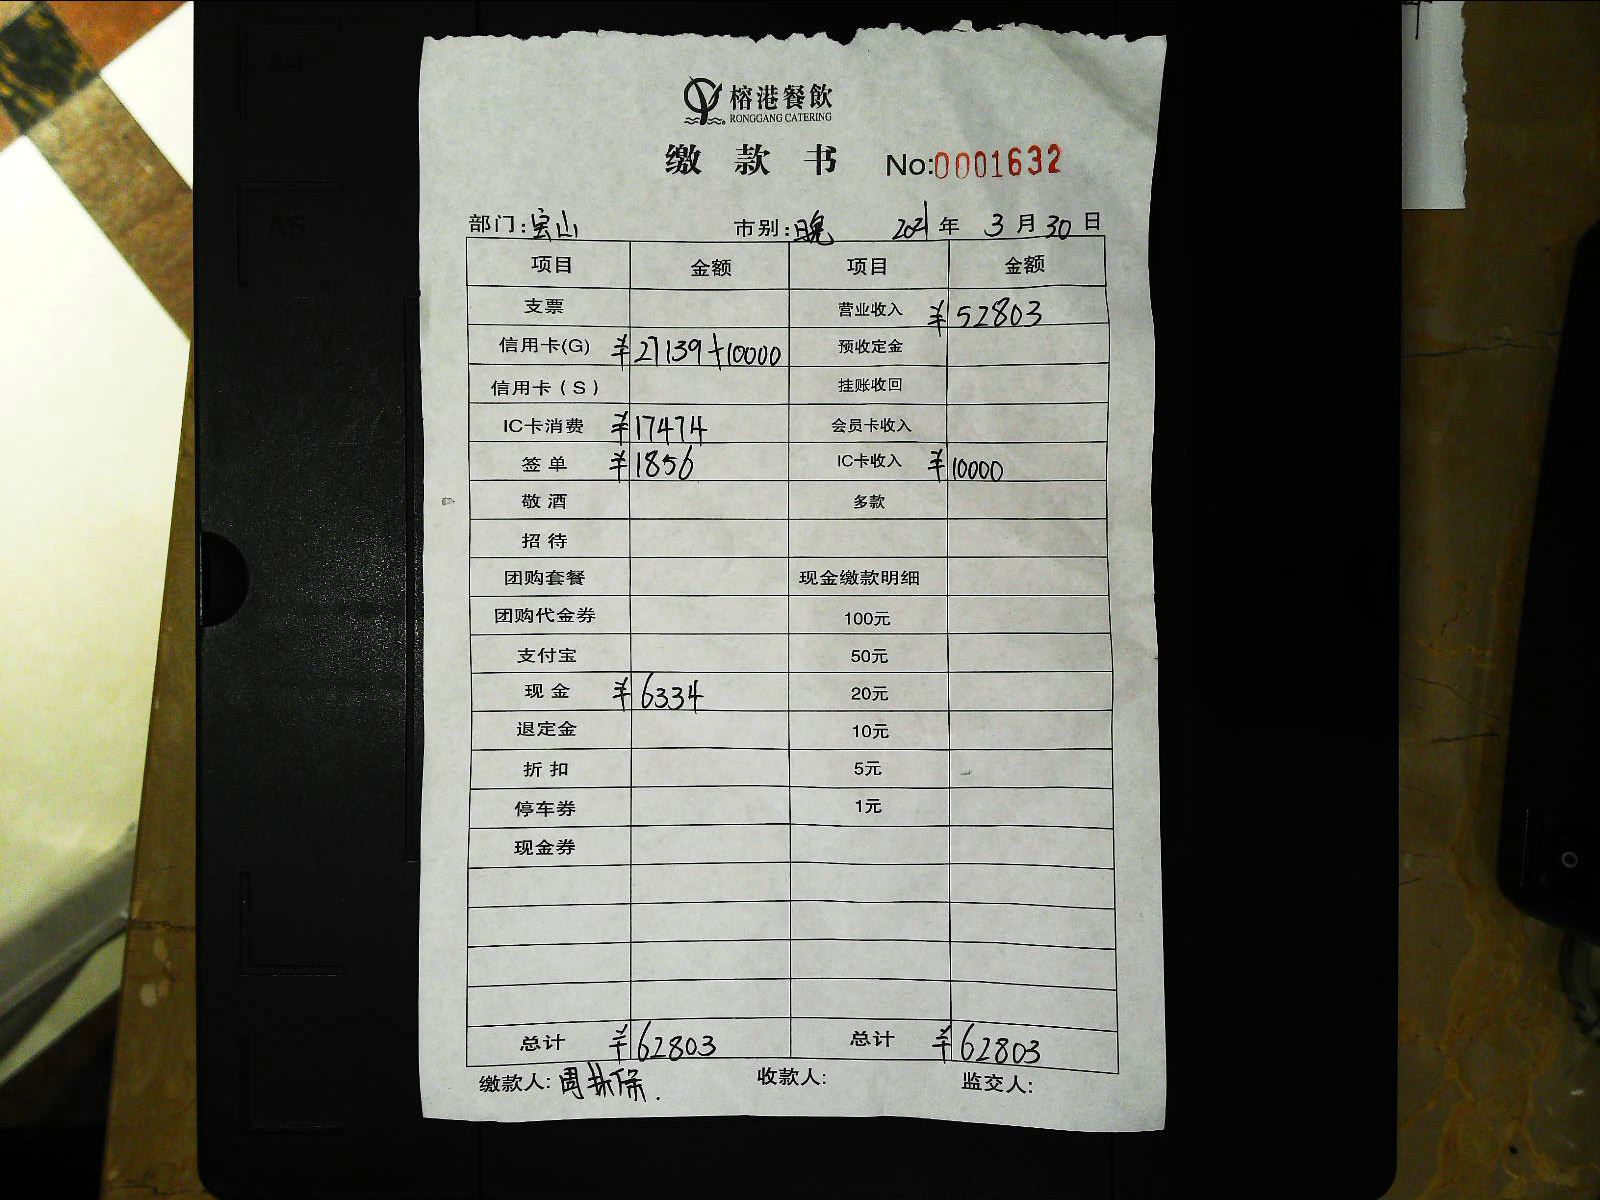 榕港餐飲
RONGGANG CATERING
缴款书 No:0001632
部门:宝山 市别:晚 2021年 3月30日
项目 金额 项目 金额
支票 营业收入 ¥52803
信用卡(G) ¥27139+10000 预收定金
信用卡(S) 挂账收回
IC卡消费 ¥17474 会员卡收入
签单 ¥1856 IC卡收入 ¥10000
敬酒 多款
招待
团购套餐 现金缴款明细
团购代金券 100元
支付宝 50元
现金 ¥6334 20元
退定金 10元
折扣 5元
停车券 1元
现金券
总计 ¥62803 总计 ¥62803
缴款人: 收款人: 监交人: